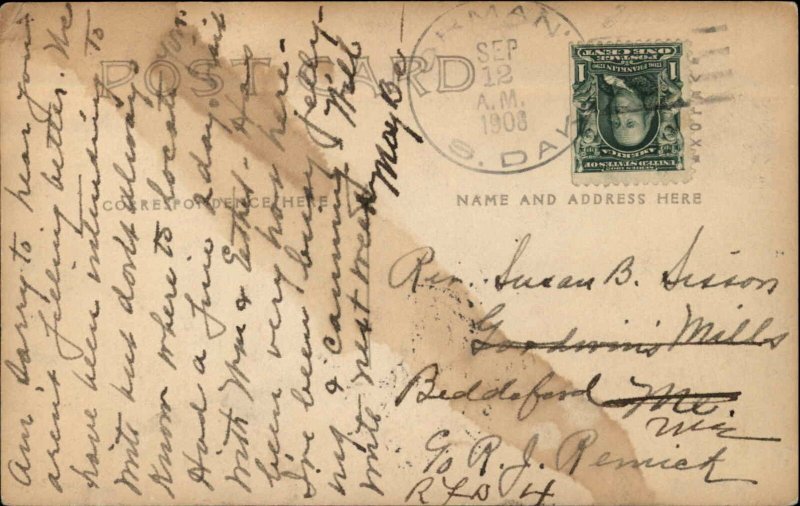 POST CARD
CORRESPONDENCE HERE
NAME AND ADDRESS HERE
SEP
12
A.M.
1908
S. DAK
ONE CENT
POSTAGE
1 1
UNITED STATES OF
AMERICA
Am sorry to hear you
aren't feeling better. We
have been intending to
write but don't always
know where to locate you.
Had a fine day. Visit
with Wm & Ethel - Has
been very hot here -
I've been busy jelly-
ing & canning. Will
write next week
May Be
Rev. Susan B. Sisson
Goodwin's Mills
Beddeford Me.
Me
c/o R. J. Remick
RFD 4